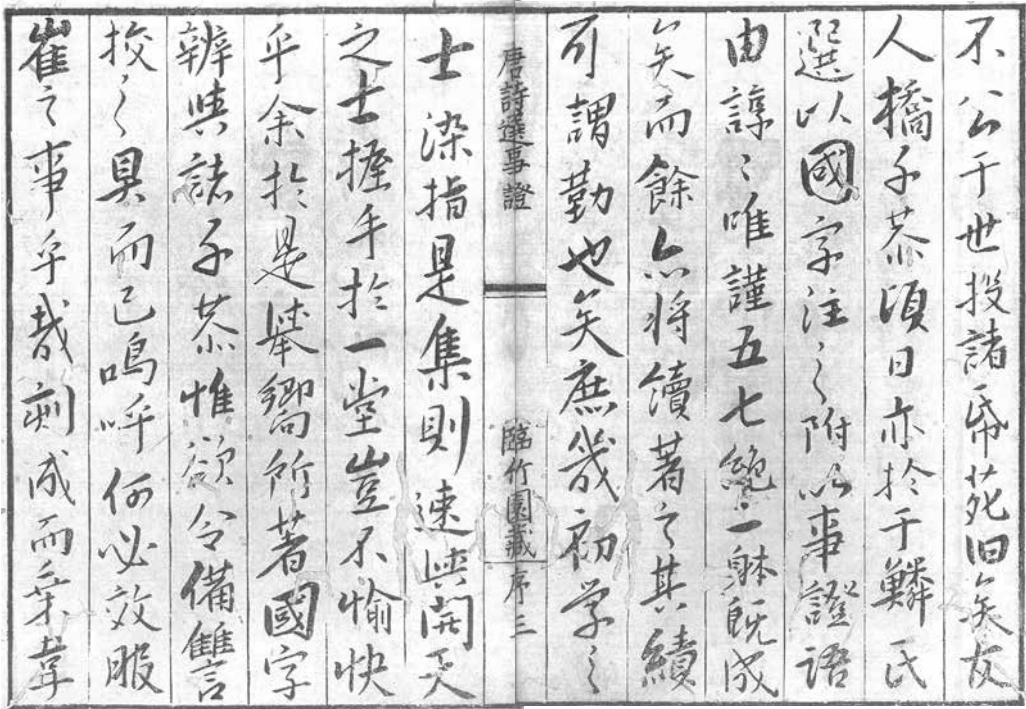 不公于世投諸帋苑旧矣友
人橋子恭頃日亦於于鱗氏
選以國字注〻附以事證語
由諄〻唯謹五七絶二躰既成
矣而餘亦将續著之其績
可謂勤也矣庶幾初学之
唐詩選事證 臨竹園藏 序 三
士染指是集則速與開天
之士握手於一堂豈不愉快
乎余於是舉嚮所著國字
辨與諸子恭惟欲令備讐
挍之具而已嗚呼何必效服
崔之事乎哉刻成而来